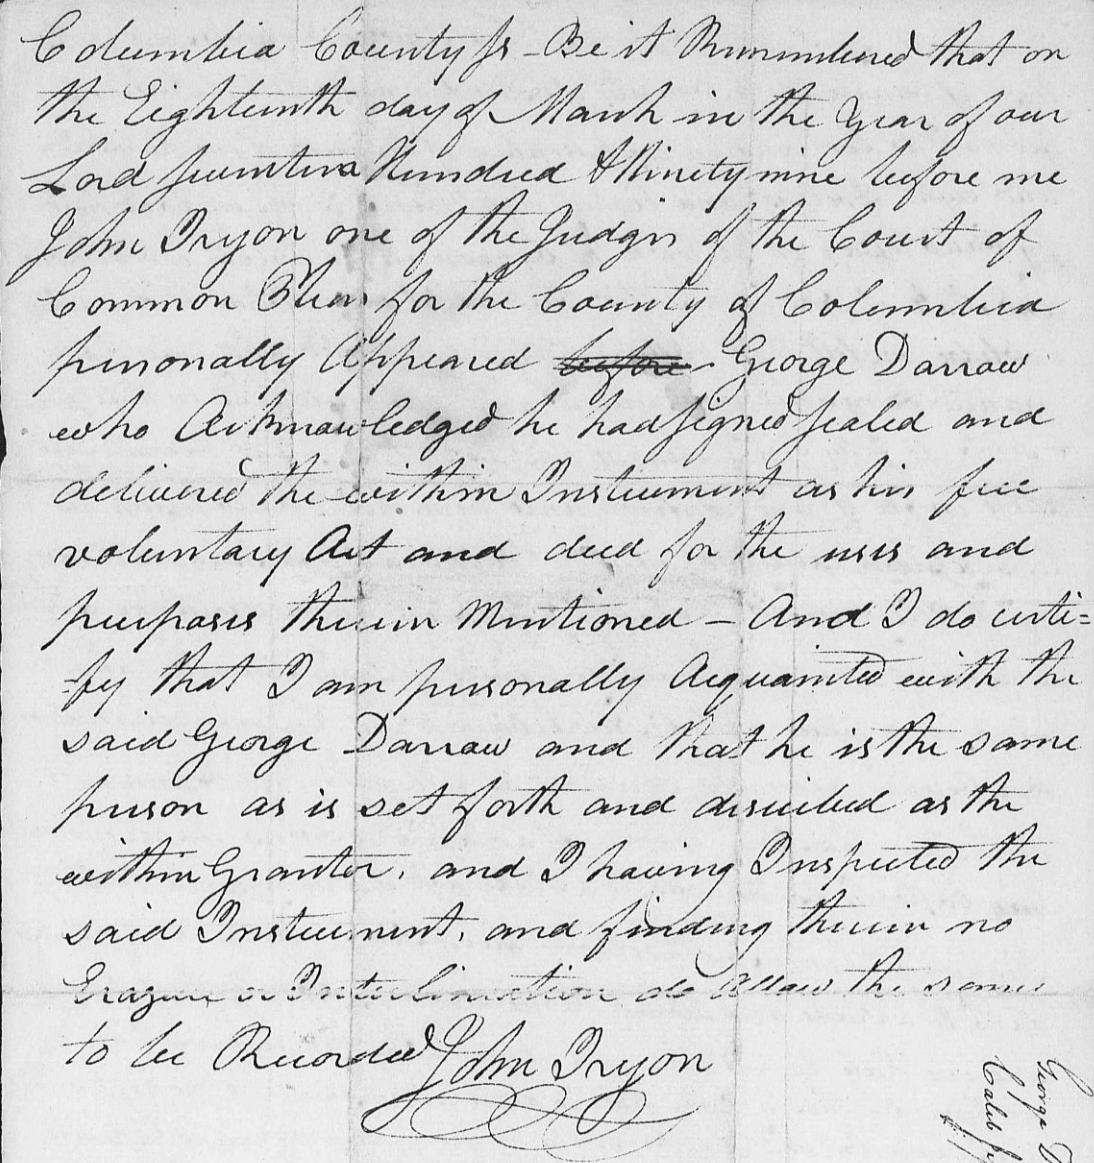 Columbia County ss Be it Rememberred that on
the Eighteenth day of March in the Year of our
Lord seventeen Hundred & Ninety nine before me
John Tryon one of the Judges of the Court of
Common Pleas for the County of Columbia
personally Appeared before George Darrow
who Acknowledged he had signed sealed and
delivered the within Instrument as his free
voluntary Act and deed for the uses and
purposes therein Mentioned – And I do certi=
=fy that I am personally Acquainted with the
said George Darrow and that he is the same
person as is set forth and described as the
within Grantor, and I having Inspected the
said Instrument, and finding therein no
Erazure or Interlineation do Allow the same
to be Recorded John Tryon
George D
Caleb